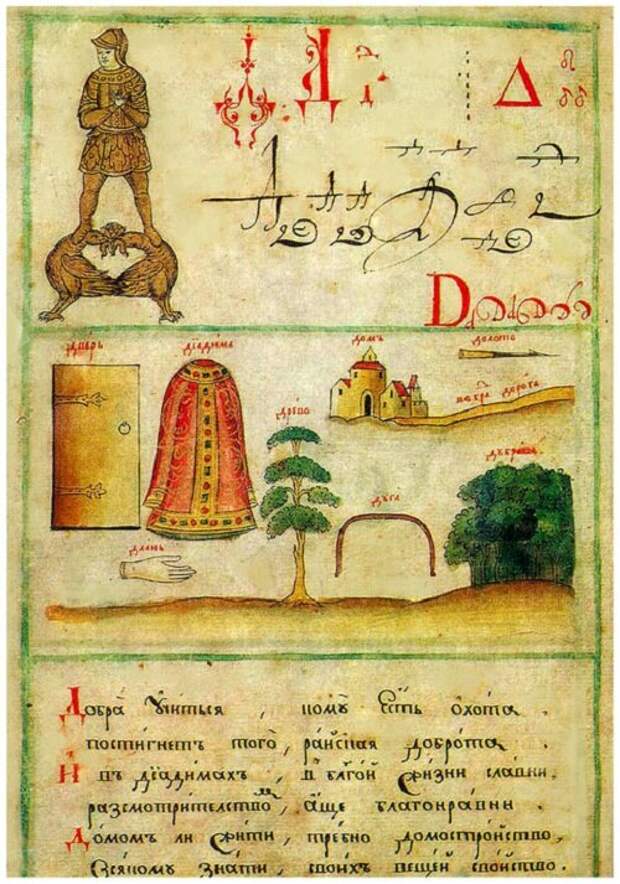 Д Δ
D
двѣрь діадима домъ долото
добра дорога
древо
дꙋбрава
дꙋга
длань
Добра Учиться , комꙋ Есть охота .
постигнетъ того , райская доброта .
И въ дїадимахъ , в бл҃гой жизни славни .
разсмотрителство , аще благонравни .
Домомъ ли жити , требно домостройство ,
Всякомꙋ знати , своихъ вещей свойство .